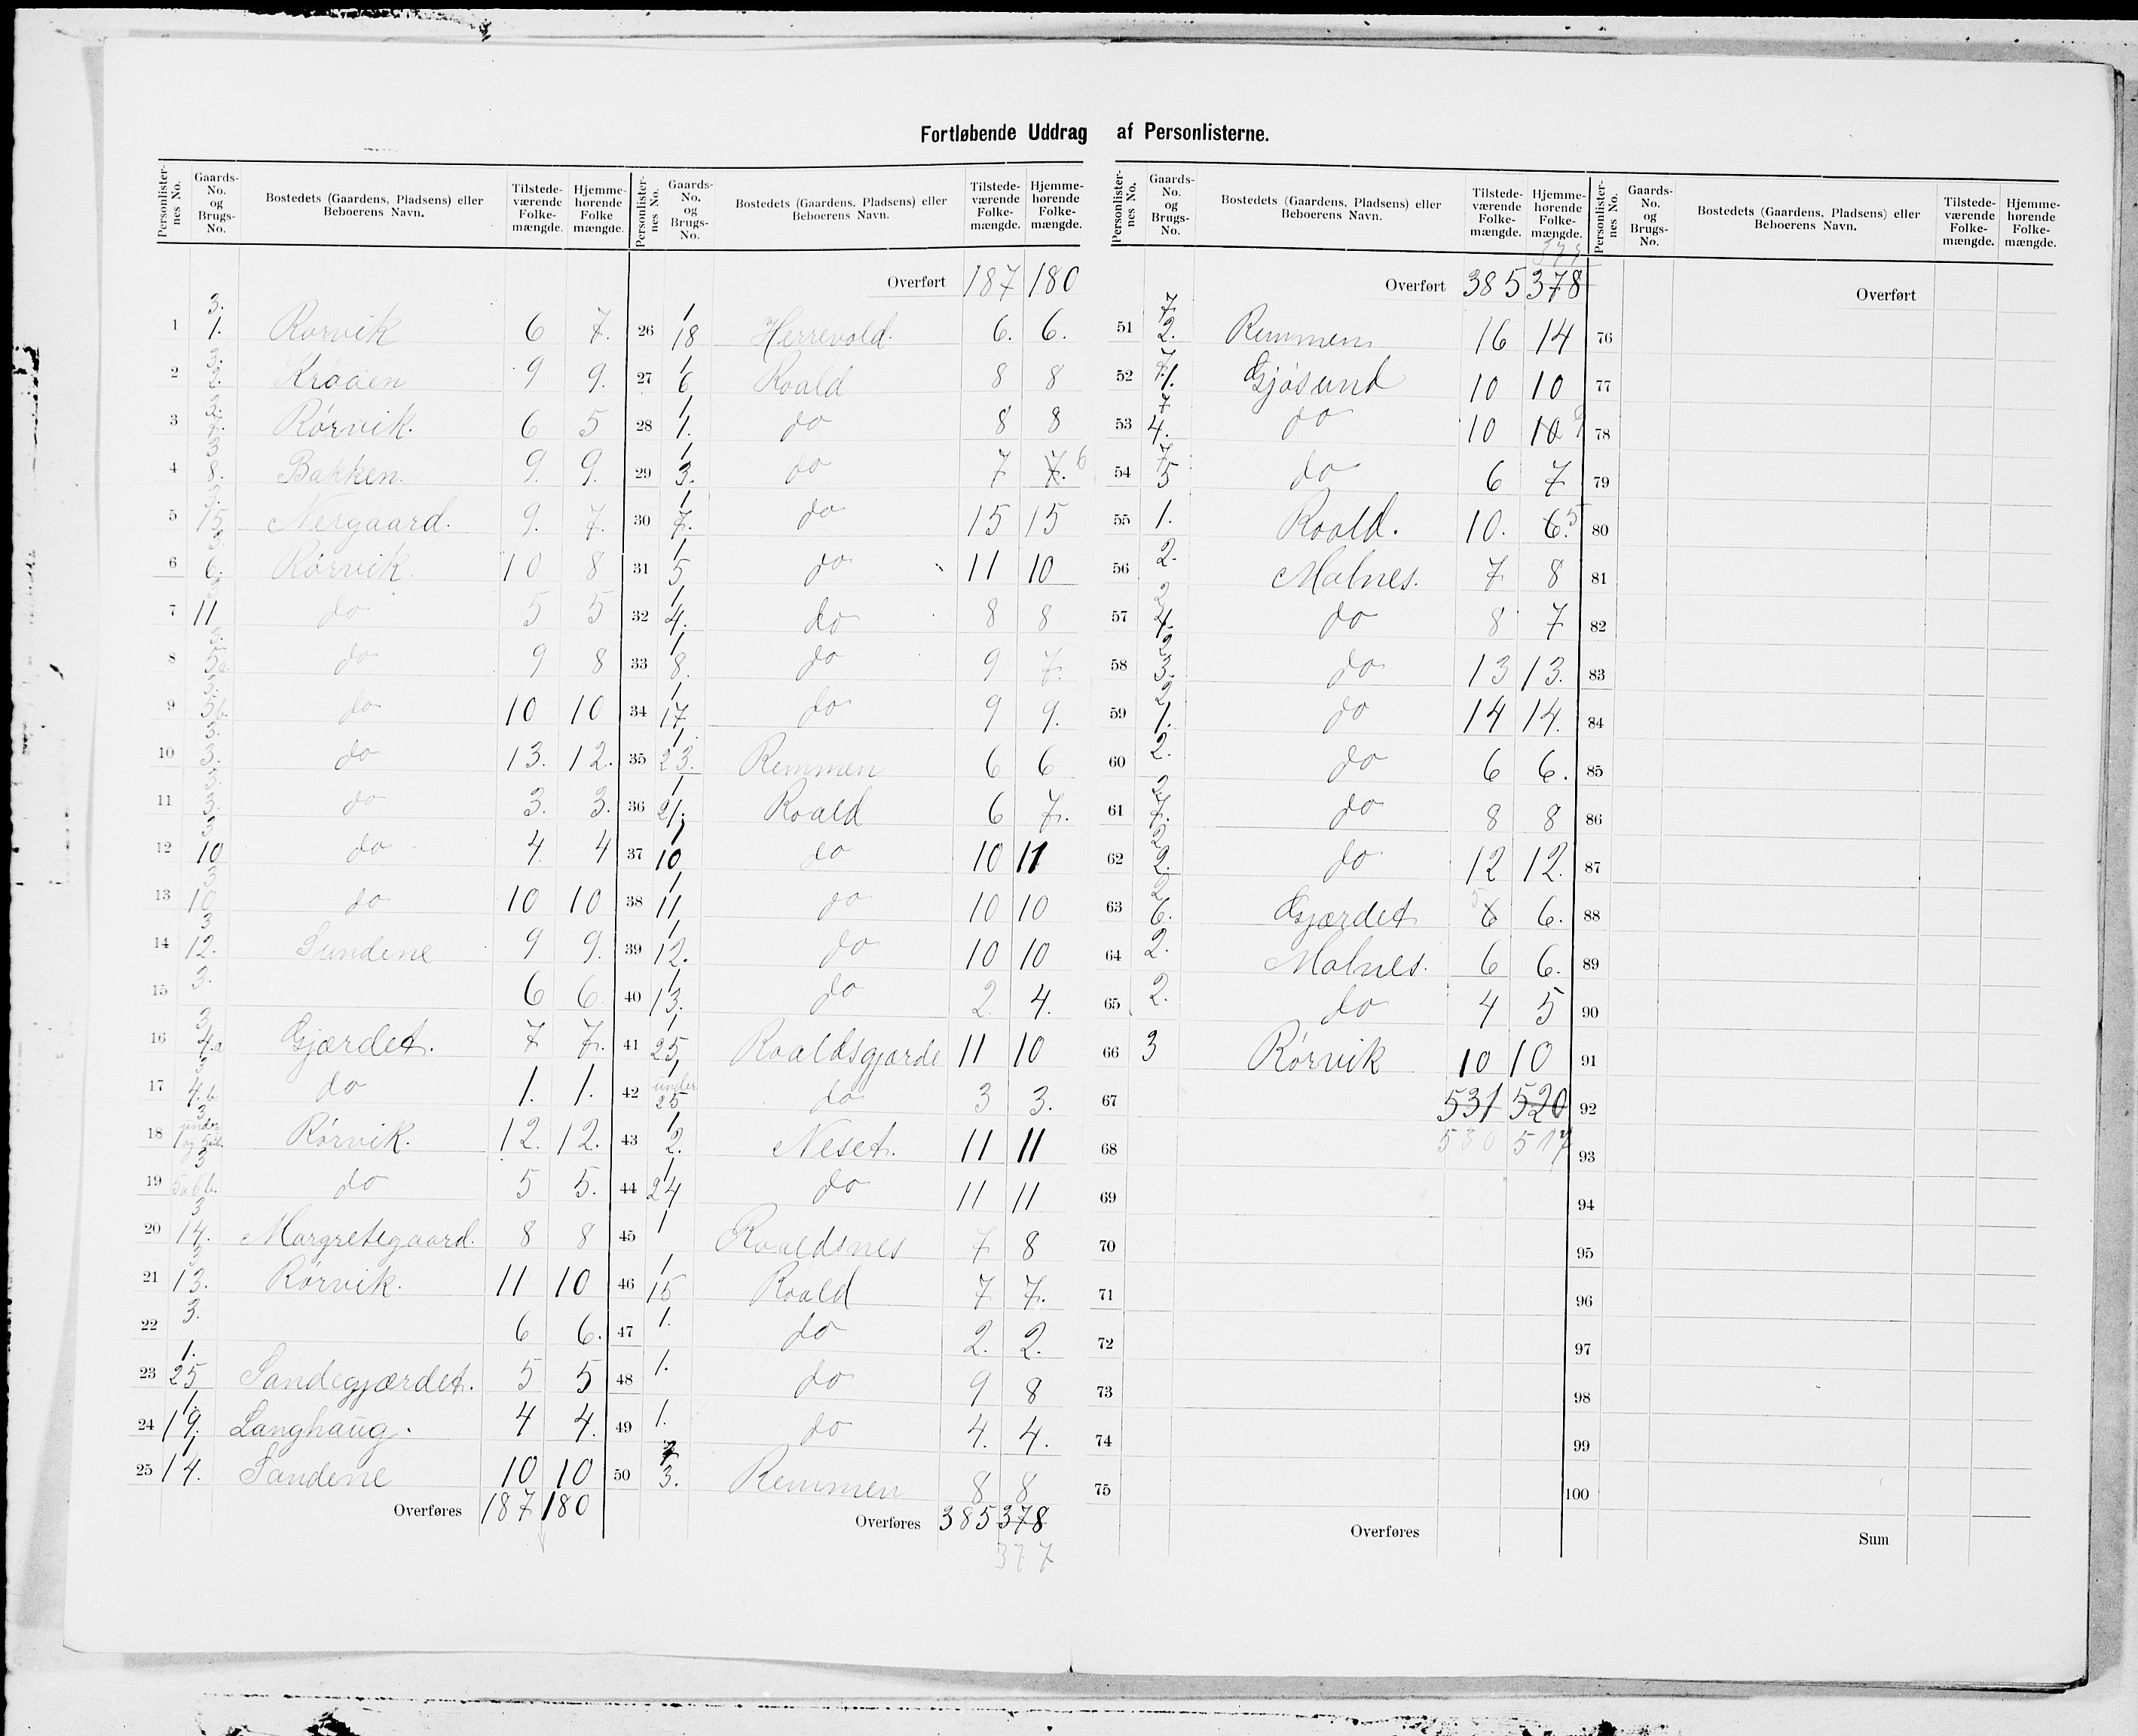 Fortløbende Uddrag af Personlisterne.
Personlister-nes No. Gaards-No. og Brugs-No. Bostedets (Gaardens, Pladsens) eller Beboerens Navn. Tilstede-værende Folke-mængde. Hjemme-hørende Folke mængde.
1 3. 1. Rørvik 6 7.
2 3. 2. Kråaen 9 9.
3 3. 7. Rørvik. 6 5
4 3 8. Bakken. 9. 9.
5 3. 15 Nergaard. 9. 7.
6 3. 6. Rørvik. 10 8
7 3 11 do 5 5
8 3. 5a do 9 8
9 3. 5b. do 10 10
10 3. 3. do 13. 12.
11 3. 3. do 3. 3.
12 3 10 do 4. 4
13 3 10 do 10 10
14 3 12. Sundene 9 9.
15 3. 6 6.
16 3 4.a Gjærdet. 7 7.
17 3 4.b. do 1. 1.
18 3 under Rørvik. 12. 12.
19 3 do 5 5.
20 3 14. Margretegaard. 8 8
21 3 13. Rørvik. 11 10
22 3. 6 6.
23 1. 25 Sandegjærdet. 5 5
24 1. 19. Langhaug. 4 4.
25 1 14. Sandene 10 10
Overføres 187 180
Personlister-nes No. Gaards-No. og Brugs-No. Bostedets (Gaardens, Pladsens) eller Beboerens Navn. Tilstede-værende Folke-mængde. Hjemme-hørende Folke-mængde.
Overført 187 180
26 1 18 Herrevold. 6. 6.
27 1 6 Roald 8 8
28 1 1. do 8 8
29 1 3. do 7 7. 6
30 1 7. do 15 15
31 1 5 do 11 10
32 1 4. do 8 8
33 1 8. do 9 7.
34 1 17 do 9 9.
35 1 23. Remmen 6 6
36 1 21. Roald 6 7.
37 1 10 do 10 11
38 1 11 do 10 10
39 1 12. do 10 10
40 1 13. do 2 4.
41 1 25 Roaldsgjærde 11 10
42 1 under 25 do 3 3.
43 1 2. Neset. 11 11
44 1 24 do 11 11
45 1 Roaldsnes 7 8
46 1 15 Roald 7 7.
47 1. do 2. 2.
48 1. do 9 8
49 1. do 4. 4.
50 7 3. Remmen 8 8
Overføres 385 378
377
Personlister-nes No. Gaards-No. og Brugs-No. Bostedets (Gaardens, Pladsens) eller Beboerens Navn. Tilstede-værende Folke-mængde. Hjemme-hørende Folke-mængde.
Overført 385 378
51 7 2. Remmen 16 14
52 7. 1. Gjøsund 10 10
53 7 4. do 10 10 9
54 7 5 do 6 7
55 1. Roald. 10. 6. 5
56 2. Molnes. 7 8
57 2 4. do 8 7
58 2 3. do 13 13.
59 2 1. do 14 14.
60 2. do 6 6.
61 2 7. do 8 8
62 2 2. do 12 12.
63 2 6. Gjærdet 5 6 6.
64 2. Molnes. 6 6.
65 2. do 4 5
66 3 Rørvik 10 10
67 531 520
68 530 517
69
70
71
72
73
74
75
Overføres
Personlister-nes No. Gaards-No. og Brugs-No. Bostedets (Gaardens, Pladsens) eller Beboerens Navn. Tilstede-værende Folke-mængde. Hjemme-hørende Folke-mængde.
Overført
76
77
78
79
80
81
82
83
84
85
86
87
88
89
90
91
92
93
94
95
96
97
98
99
100
Sum